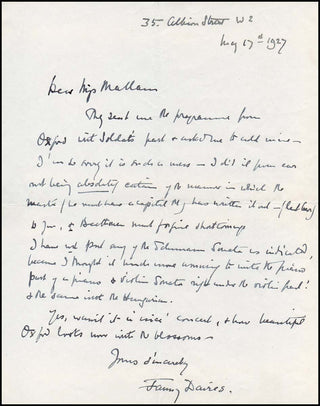 35. Albion Street W2
May 17th 1927
Dear Miss Mallam
They sent me the programme from
Oxford with Soldat's part & asked me to add mine –
I'm so sorry it is such a mess – I did it from ear
not being absolutely certain of the manner in which the
master has written it out –
to you, & Beethoven must forgive shortcomings
I have not put any of the Schumann Sonata as indicated,
because I thought it looks more amusing to write the piano
part of a piano & violin Sonata right under the violin part!
& the same with the Hungarian.
Yes, wasn't it a nice concert, & how beautiful
Oxford looks now with the blossoms –
Yours sincerely
Fanny Davies.